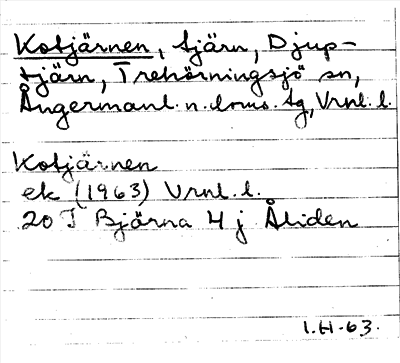 Kotjärnen, tjärn, Djup-
tjärn, Trehörningsjö sn,
Ångermanl. n. doms. tg, Vrnl. l.
Kotjärnen
ek (1963) Vrnl. l.
20 I Björna 4 j Åliden
1.H.63.